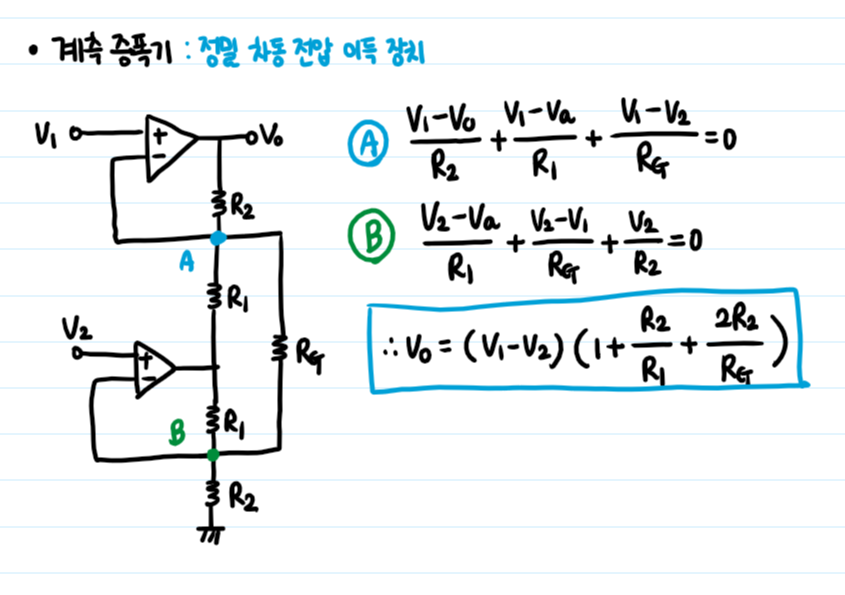 • 계측 증폭기 : 정밀 차동 전압 이득 장치
V₁
+
−
V₀
R₂
A
R₁
V₂
+
−
R_G
B
R₁
R₂
Ⓐ (V₁−V₀)/R₂ + (V₁−Va)/R₁ + (V₁−V₂)/R_G = 0
Ⓑ (V₂−Va)/R₁ + (V₂−V₁)/R_G + V₂/R₂ = 0
∴ V₀ = (V₁−V₂)(1 + R₂/R₁ + 2R₂/R_G)